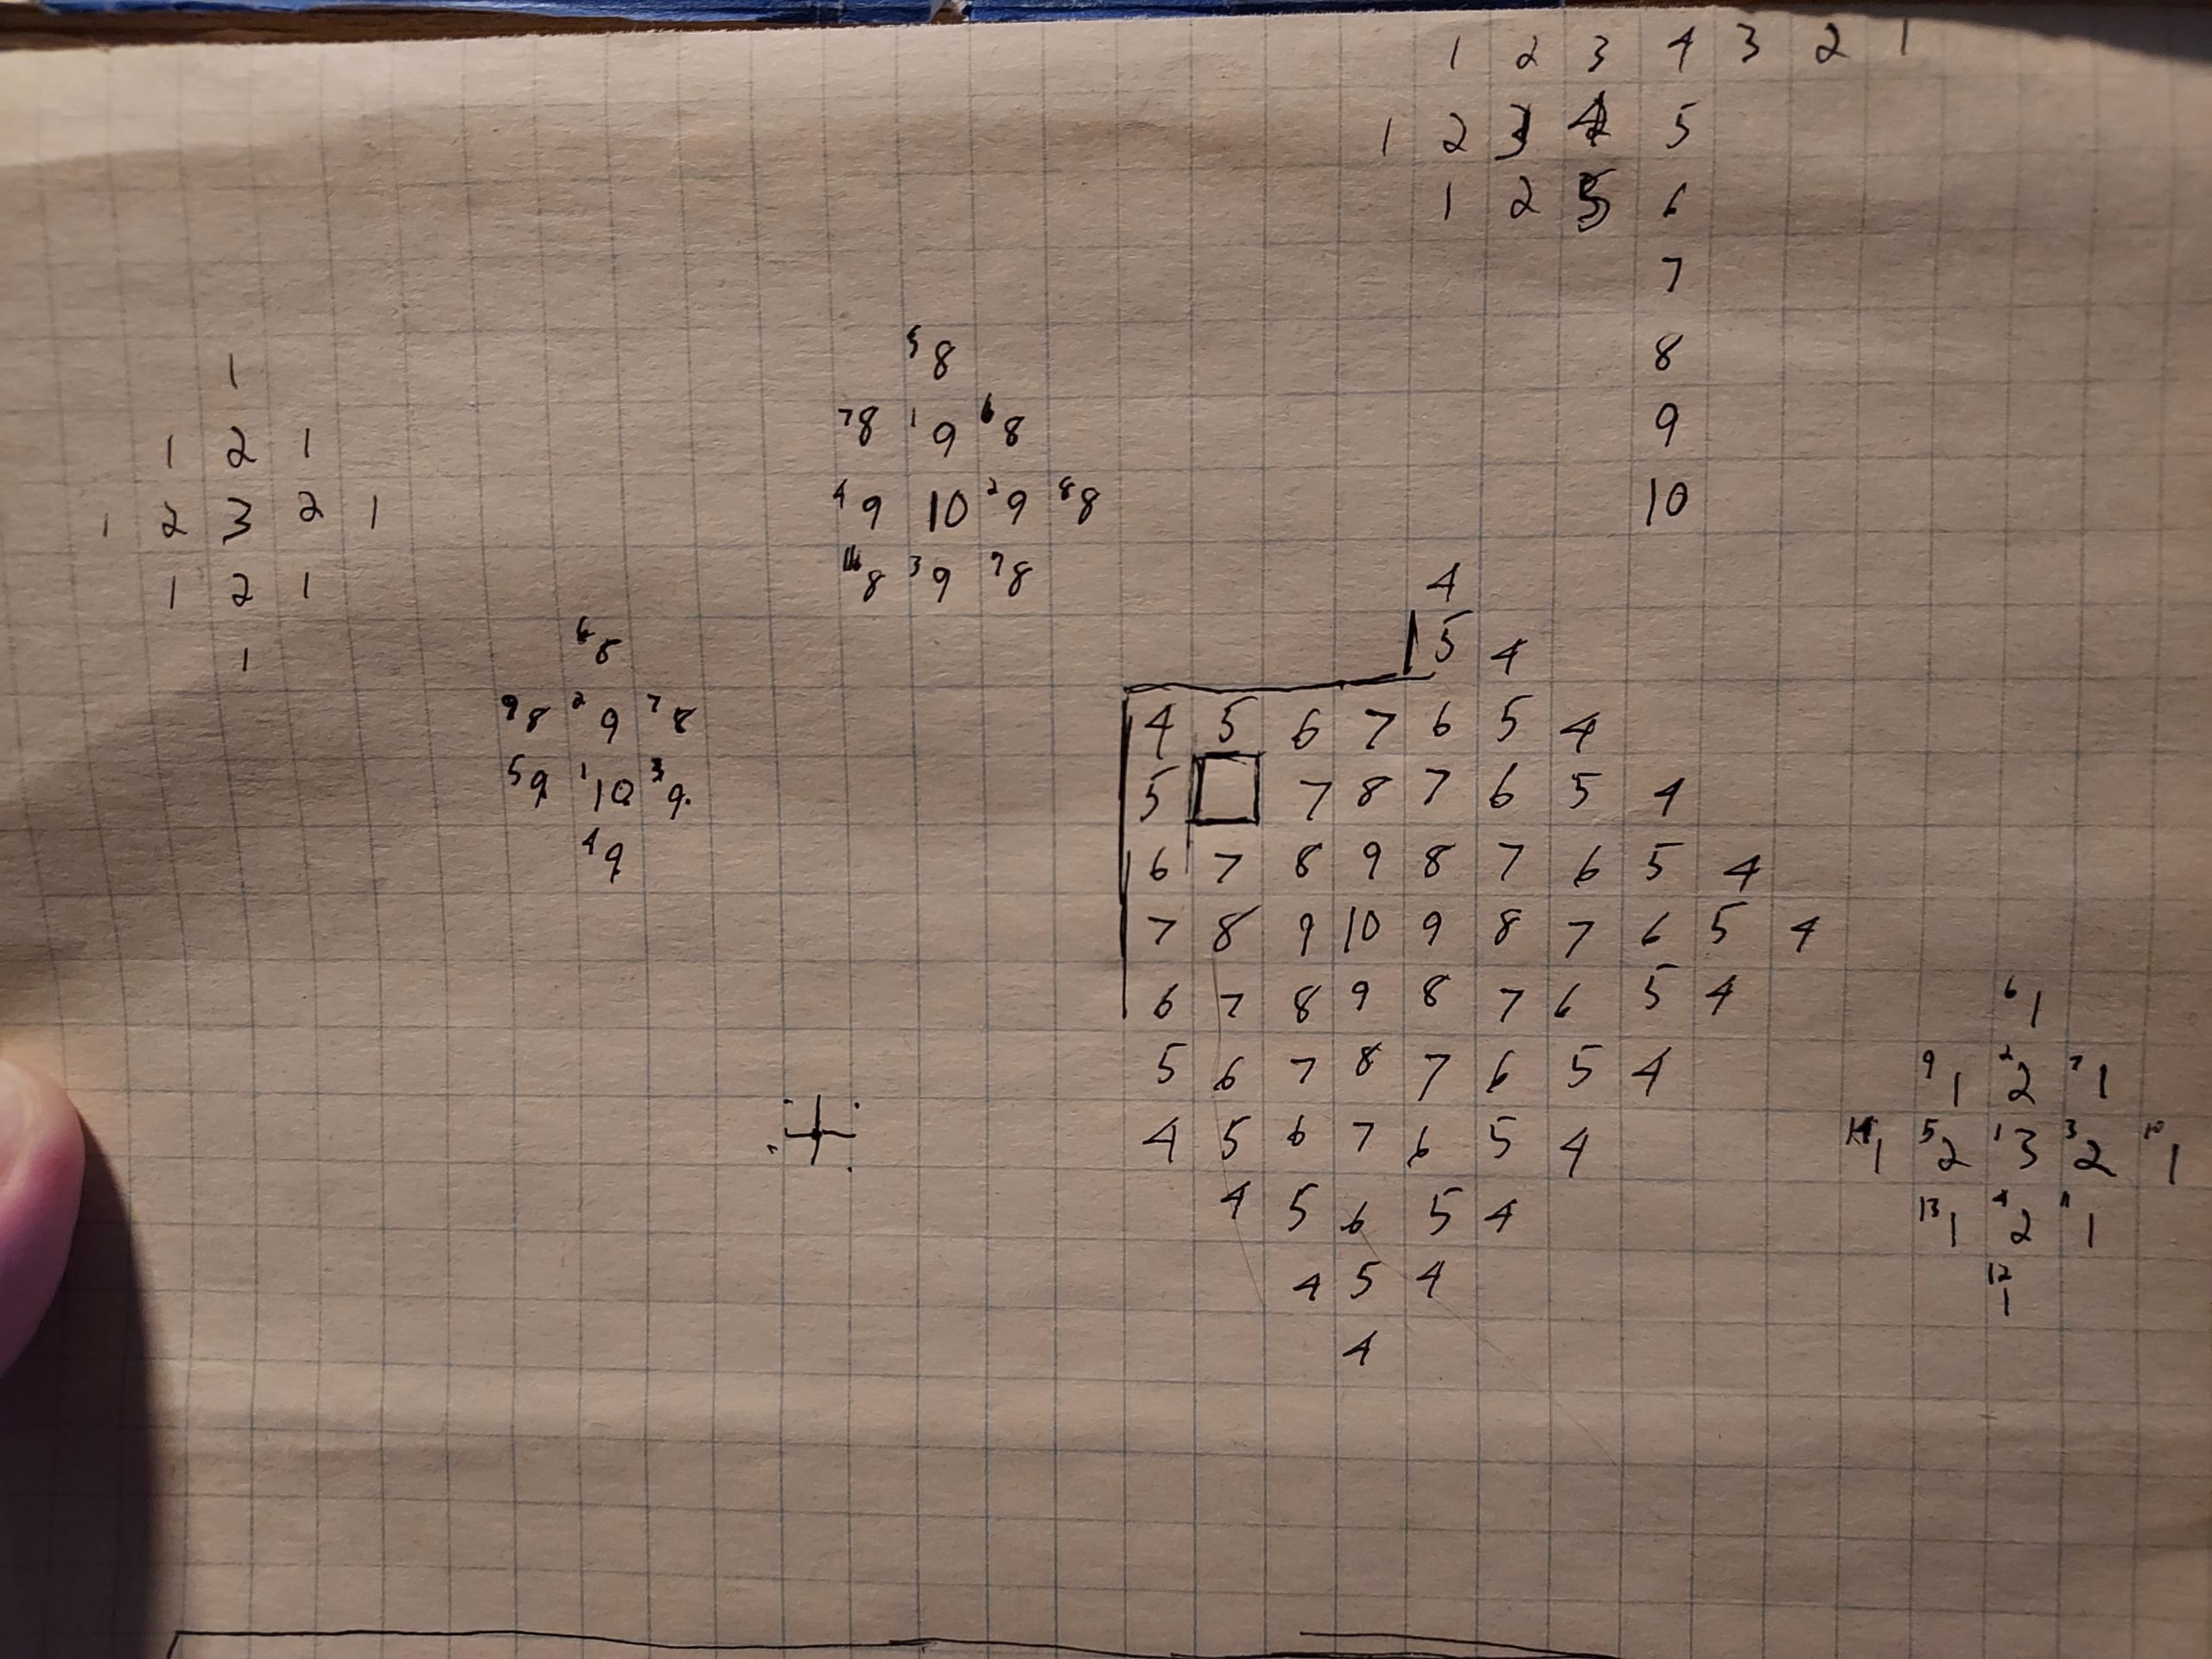 1 2 3 4 3 2 1
1 2 3 4 5
1 2 5 6
7
8
9
10
1
1 2 1
1 2 3 2 1
1 2 1
1
5 8
7 8 1 9 6 8
4 9 10 2 9 8 8
8 3 9 7 8
6 8
9 8 2 9 7 8
5 9 1 10 3 9
4 9
4
5 4
4 5 6 7 6 5 4
5 7 8 7 6 5 4
6 7 8 9 8 7 6 5 4
7 8 9 10 9 8 7 6 5 4
6 7 8 9 8 7 6 5 4
5 6 7 8 7 6 5 4
4 5 6 7 6 5 4
4 5 6 5 4
4 5 4
4
6 1
9 1 2 2 7 1
14 1 5 2 1 3 3 2 10 1
13 1 4 2 11 1
12 1